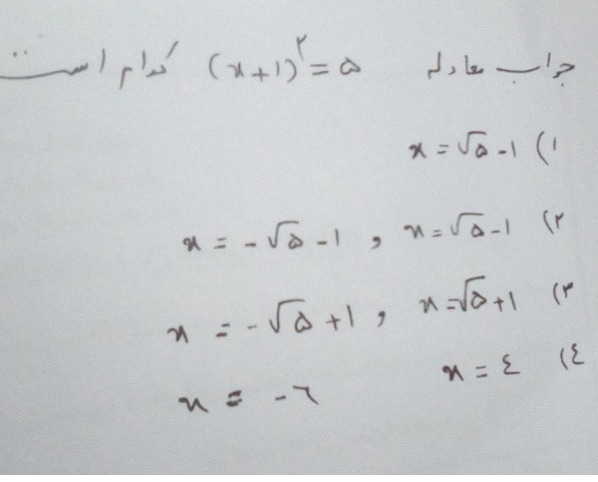 جواب معادله (x+1)^۲ = ۵ کدام است
۱) x = √۵ - ۱
۲) x = √۵ - ۱ , x = -√۵ - ۱
۳) x = √۵ + ۱ , x = -√۵ + ۱
٤) x = ٤ x = -٦